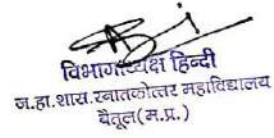 विभागाध्यक्ष हिन्दी
ज.हा.शास.स्नातकोत्तर महाविद्यालय
बैतूल(म.प्र.)